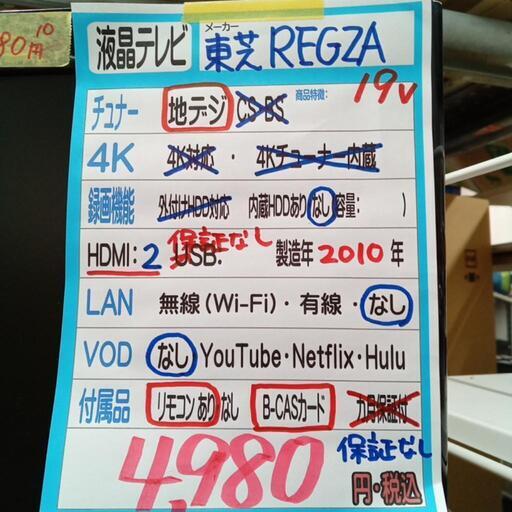 80 10
円
液晶テレビ メーカー 東芝 REGZA
19v
チュナー 地デジ CS・BS 商品特徴:
4K 4K対応 ・ 4Kチューナー内蔵
録画機能 外付けHDD対応 内蔵HDDあり なし 容量: )
保証なし
HDMI: 2 USB: 製造年 2010 年
LAN 無線(Wi-Fi)・有線・なし
VOD なし YouTube・Netflix・Hulu
付属品 リモコン あり なし B-CASカード カ月保証付
4,980 保証なし
円・税込